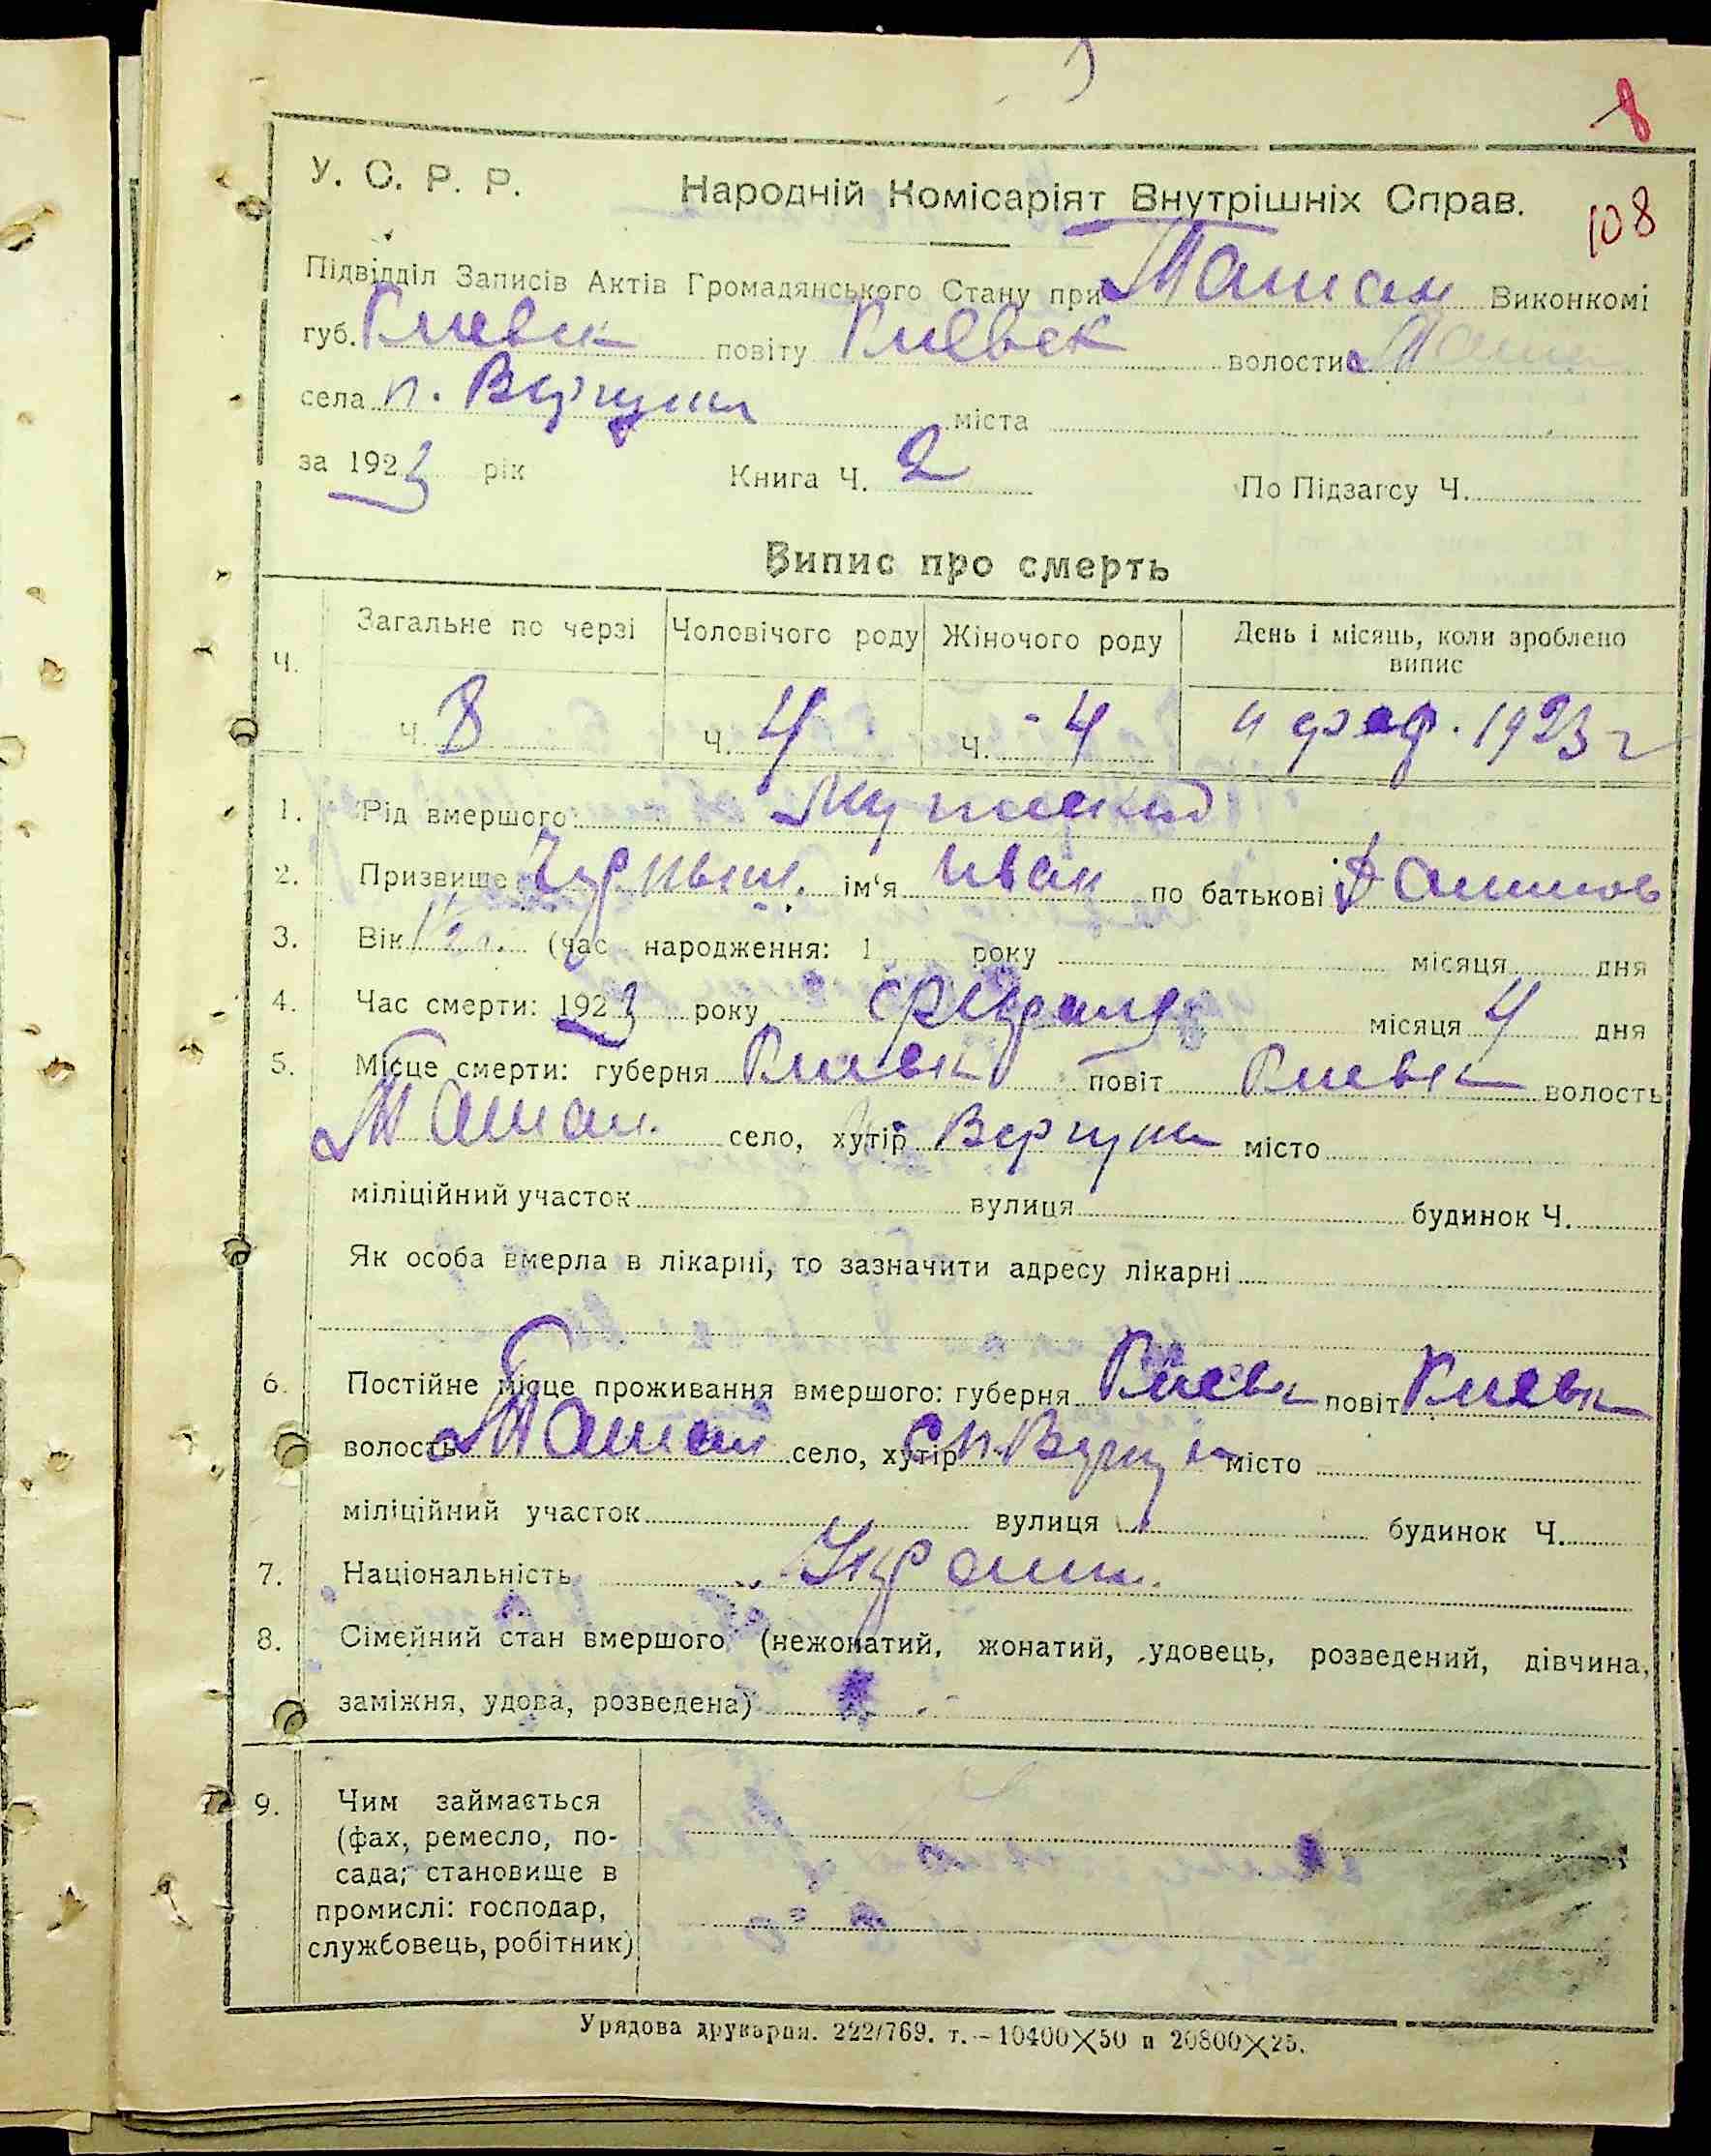 8
У. С. Р. Р. Народній Комісаріят Внутрішніх Справ.
108
Підвідділ Записів Актів Громадянського Стану при Ташан Виконкомі
губ. Киевск повіту Киевск волости Таша
села п. Вергуны міста
за 1923 рік Книга Ч. 2 По Підзагсу Ч.
Випис про смерть
Ч. Загальне по черзі Чоловічого роду Жіночого роду День і місяць, коли зроблено
випис
Ч. 8 Ч. 4 Ч. - 4 4 фев. 1923 г
1. Рід вмершого Мужской
2. Призвище ім'я Иван по батькові
3. Вік 1/2 г. (час народження: 1 року місяця дня
4. Час смерти: 1923 року февраля місяця 4 дня
5. Місце смерти: губерня Киевск повіт Киевск волость
Ташан. село, хутір Вергуны місто
міліційний участок вулиця будинок Ч.
Як особа вмерла в лікарні, то зазначити адресу лікарні
6. Постійне місце проживання вмершого: губерня Киевск повіт Киевск
волость Ташан село, хутір п. Вергуны місто
міліційний участок вулиця будинок Ч.
7. Національність Украин.
8. Сімейний стан вмершого (нежонатий, жонатий, удовець, розведений, дівчина,
заміжня, удова, розведена)
9. Чим займається
(фах, ремесло, по-
сада; становище в
промислі: господар,
службовець, робітник)
Урядова друкарня. 222/769. т.—10400×50 и 20800×25.